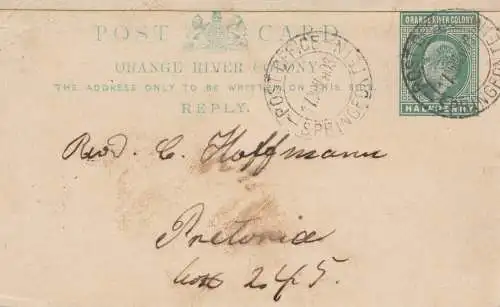 POST CARD
ORANGE RIVER COLONY
THE ADDRESS ONLY TO BE WRITTEN ON THIS SIDE
REPLY.
ORANGE RIVER COLONY
HALFPENNY
POST OFFICE
SPRINGFONTEIN
Revd. C. Hoffmann
Pretoria
Box 245.